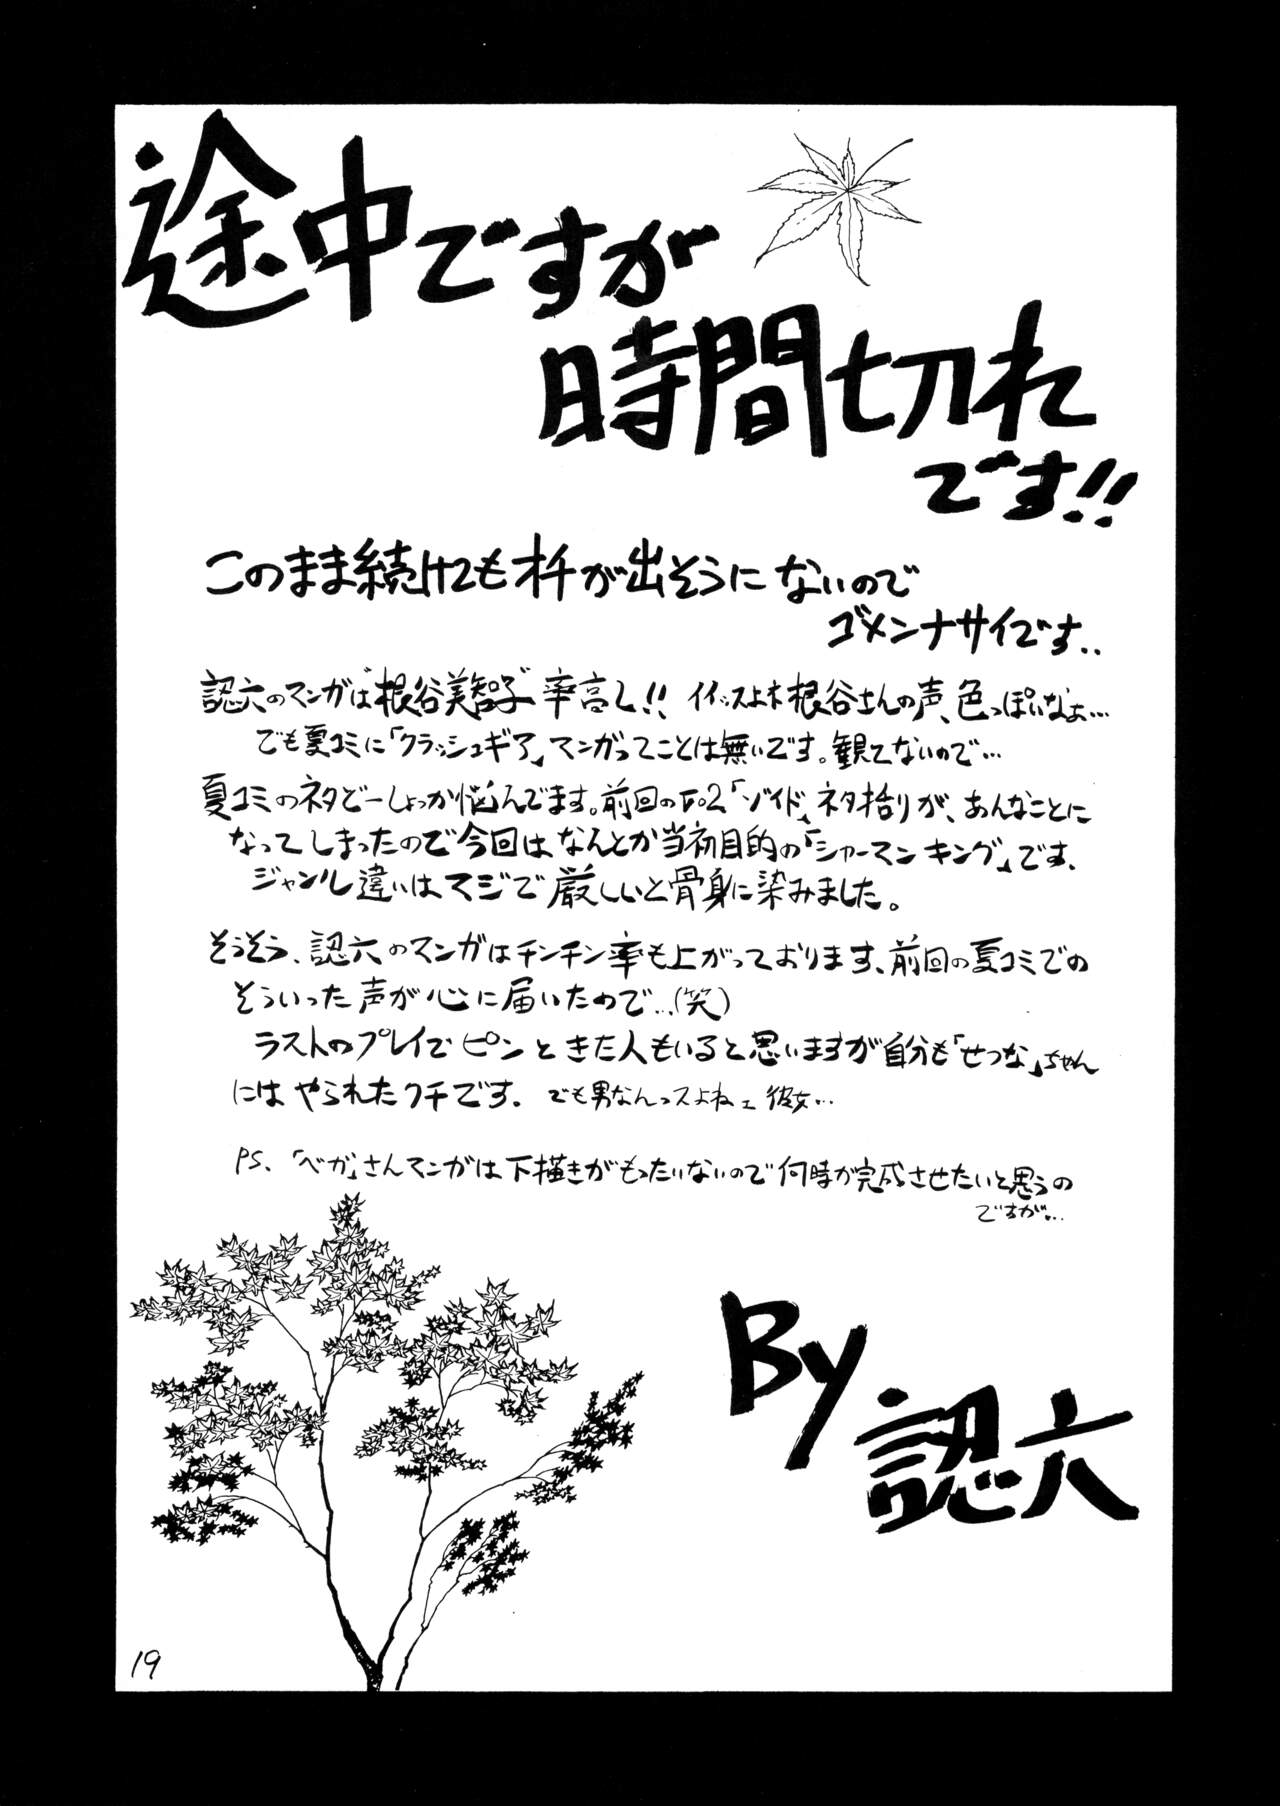 途中ですが
時間切れ
です!!
このまま続けてもオチが出そうにないので
ゴメンナサイです..
認六のマンガは"根谷美智子"率高し!! イイッスよネ根谷さんの声、色っぽいなぁ…
でも夏コミに「クラッシュギア」マンガってことは無いです。観てないので…
夏コミのネタどーしょっか悩んでます。前回のFo2「ゾイド」ネタ拾りが、あんなことに
なってしまったので今回はなんとか当初目的の「シャーマンキング」です、
ジャンル違いはマジで厳しいと骨身に染みました。
そうそう、認六のマンガはチンチン率も上がっております、前回の夏コミでの
そういった声が心に届いたので…(笑)
ラストのプレイでピンときた人もいると思いますが自分も「せつな」ちゃん
にはやられたクチです. でも男なんっスよねェ 彼女…
PS、「ベガ」さんマンガは下描きがもったいないので何時か完成させたいと思うの
ですが…
By
認六
19